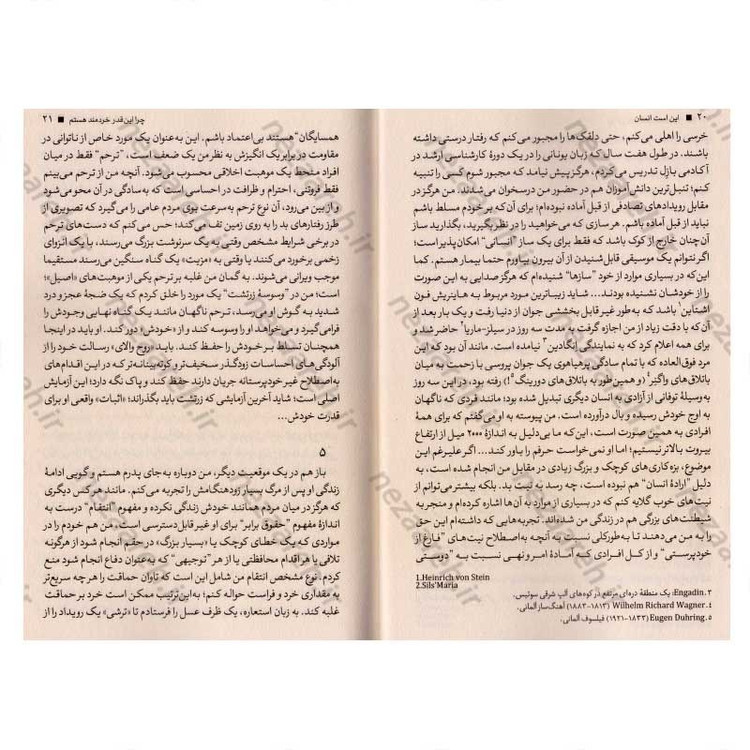 ۲۰ ■ این است انسان
خرسی را اهلی می‌کنم، حتی دلقک‌ها را مجبور می‌کنم که رفتار درستی داشته
باشند. در طول هفت سال که زبان یونانی را در یک دورهٔ کارشناسی ارشد در
آکادمی بازل تدریس می‌کردم، هرگز پیش نیامد که مجبور شوم کسی را تنبیه
کنم؛ تنبل‌ترین دانش‌آموزان هم در حضور من درسخوان می‌شدند. من هرگز در
مقابل رویدادهای تصادفی از قبل آماده نبوده‌ام؛ برای آن که بر خودم مسلط باشم
نباید از قبل آماده باشم. هر سازی که می‌خواهید را در نظر بگیرید، بگذارید ساز
آن‌چنان خارج از کوک باشد که فقط برای یک ساز "انسانی" امکان‌پذیر است؛
اگر نتوانم یک موسیقی قابل شنیدن از آن بیرون بیاورم حتما بیمار هستم. کما
این‌که در بسیاری موارد از خود "سازها" شنیده‌ام که هرگز صدایی به این صورت
را از خودشان نشنیده بودند... شاید زیباترین مورد مربوط به هاینریش فون
اشتاین¹ باشد که به‌طور غیر قابل بخششی جوان از دنیا رفت و یک بار بعد از
آن که با دقت زیاد از من اجازه گرفت به مدت سه روز در سیلز-ماریا² حاضر شد و
برای همه اعلام کرد که به نمایندگی انگادین³ نیامده است. مانند آن بود که این
مرد فوق‌العاده که با تمام سادگی پرهیاهوی یک جوان پروسی با زحمت به میان
باتلاق‌های واگنر⁴ (و همین‌طور به باتلاق‌های دورینگ⁵!) رفته بود، در این سه روز
به‌وسیلهٔ توفانی از آزادی به انسان دیگری تبدیل شده بود؛ مانند فردی که ناگهان
به اوج خودش رسیده و بال درآورده است. من پیوسته به او می‌گفتم که برای همهٔ
افرادی به همین صورت است، این‌که ما بی‌دلیل به اندازهٔ ۲۰۰۰ میل از ارتفاع
بیروت بالاتر نیستیم؛ اما او نمی‌خواست حرفم را باور کند... اگر علیرغم این
موضوع، بزه‌کاری‌های کوچک و بزرگ زیادی در مقابل من انجام شده است،
دلیل "ارادهٔ انسان" هم نبوده است، چه رسد به نیت بد. بلکه بیشتر می‌توانم از
نیت‌های خوب گلایه کنم که در بسیاری از موارد به آن‌ها اشاره کرده‌ام و منجر به
شیطنت‌های بزرگی هم در زندگی من شده‌اند. تجربه‌هایی که داشته‌ام این حق
را به من می‌دهند تا به‌طورکلی نسبت به آنچه به‌اصطلاح نیت‌های "فارغ از
خودپرستی" و از کل افرادی که آمادهٔ امر و نهی نسبت به "دوستی
1.Heinrich von Stein
2.Sils'Maria
۳.Engadin: یک منطقهٔ دره‌ای مرتفع در کوه‌های آلپ شرقی سوئیس.
۴.Wilhelm Richard Wagner (۱۸۱۳-۱۸۸۳) آهنگ‌ساز آلمانی.
۵.Eugen Duhring (۱۸۳۳-۱۹۲۱) فیلسوف آلمانی.
چرا این‌قدر خردمند هستم ■ ۲۱
همسایگان" هستند بی‌اعتماد باشم. این به‌عنوان یک مورد خاص از ناتوانی در
مقاومت در برابر یک انگیزش به نظر من یک ضعف است، "ترحم" فقط در میان
افراد منحط یک موهبت اخلاقی محسوب می‌شود. آنچه من از ترحم می‌بینم
فقط فروتنی، احترام و ظرافت در احساسی است که به‌سادگی در آن محو می‌شود
و از بین می‌رود، آن نوع ترحم به‌سرعت بوی مردم عامی را می‌گیرد که تصویری از
طرز رفتارهای بد را به روی زمین تف می‌کند؛ حس می‌کنم که دست‌های ترحم
در برخی شرایط مشخص وقتی به یک سرنوشت بزرگ می‌رسند، با یک انزوای
زخمی برخورد می‌کنند یا وقتی به «مزیت» یک گناه سنگین می‌رسند مستقیما
موجب ویرانی می‌شوند. به گمان من غلبه بر ترحم یکی از موهبت‌های «اصیل»
است؛ من در "وسوسهٔ زرتشت" یک مورد را خلق کردم که یک ضجهٔ عجز و درد
شدید به گوش او می‌رسد، ترحم ناگهان مانند یک گناه نهایی وجودش را
فرامی‌گیرد و می‌خواهد او را وسوسه کند و از «خودش» دور کند. او باید در اینجا
همچنان تسلط بر خودش را حفظ کند. باید «روح والای» رسالت خود را از
آلودگی‌های احساسات زودگذر سخیف‌تر و کوته‌بینانه‌تر که در این اقدام‌های
به‌اصطلاح غیر خودپرستانه جریان دارند حفظ کند و پاک نگه دارد؛ این آزمایش
اصلی است؛ شاید آخرین آزمایشی که زرتشت باید بگذراند؛ «اثبات» واقعی او برای
قدرت خودش...
۵
باز هم در یک موقعیت دیگر، من دوباره به‌جای پدرم هستم و گویی ادامهٔ
زندگی او پس از مرگ بسیار زودهنگامش را تجربه می‌کنم. مانند هر کس دیگری
که هرگز در میان مردم همانند خودش زندگی نکرده و مفهوم "انتقام" درست به
اندازهٔ مفهوم "حقوق برابر" برای او غیر قابل‌دسترسی است، من هم خودم را در
مواردی که یک خطای کوچک یا «بسیار بزرگ» در حقم انجام شود از هرگونه
تلافی یا هر اقدام محافظتی یا از هر "توجیهی" که به‌عنوان دفاع انجام شود منع
می‌کنم. نوع مشخص انتقام من شامل این است که تاوان حماقت را هر چه سریع‌تر
به مقداری خرد و فراست حواله کنم؛ به‌این‌ترتیب ممکن است خرد بر حماقت
غلبه کند. به زبان استعاره، یک ظرف عسل را فرستادم تا «ترشی» یک رویداد را از
nezaareh.ir